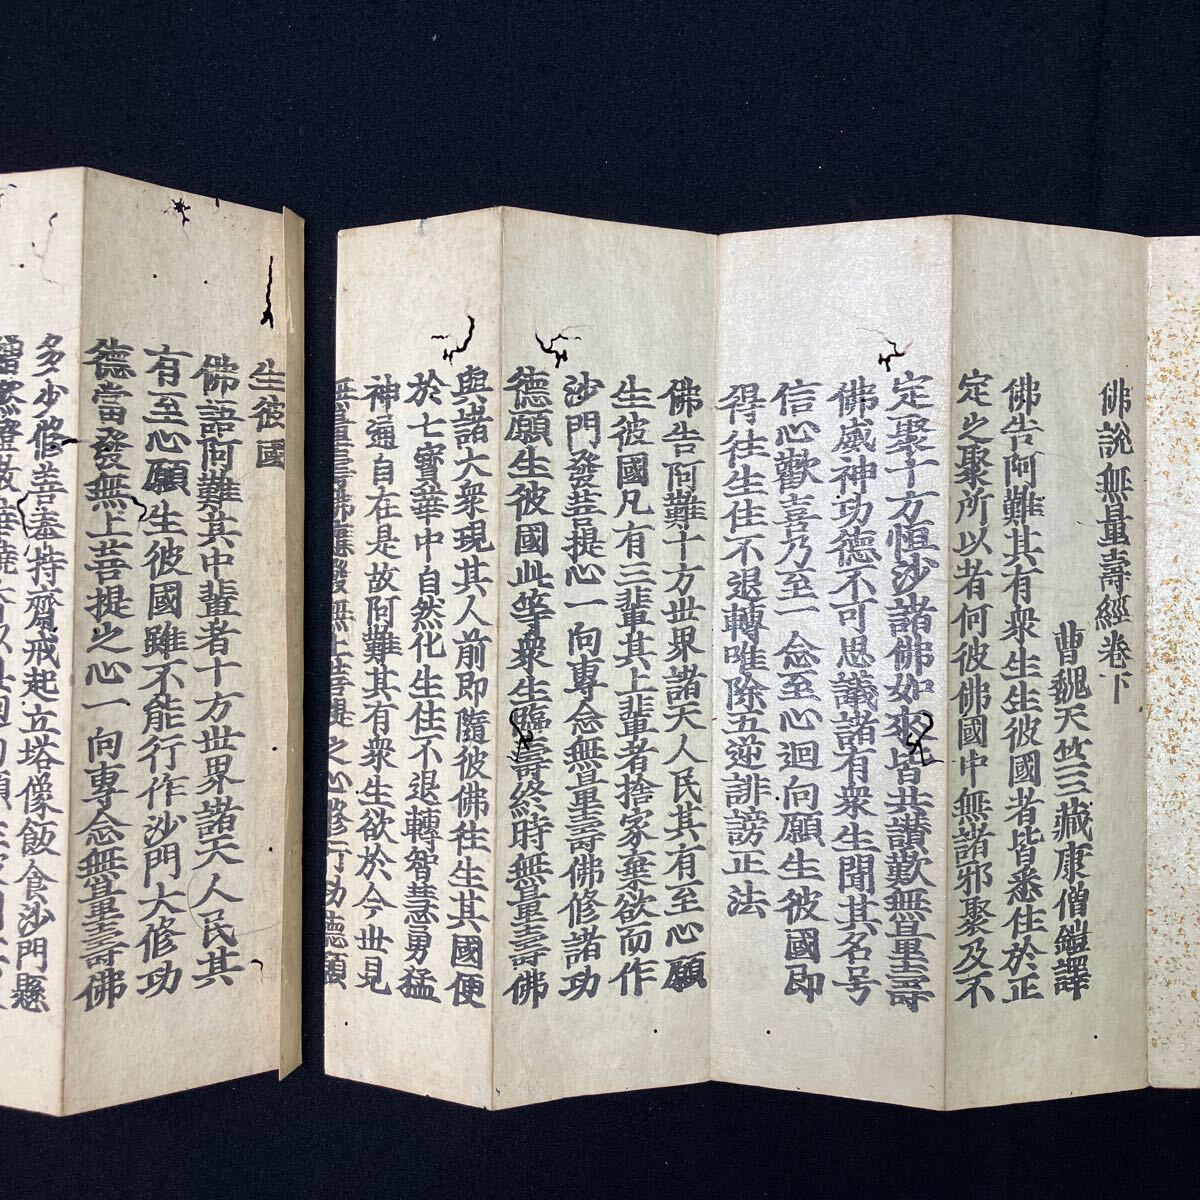 佛說無量壽經卷下
曹魏天竺三藏康僧鎧譯
佛告阿難其有衆生生彼國者皆悉住於正
定之聚所以者何彼佛國中無諸邪聚及不
定聚十方恒沙諸佛如來皆共讚歎無量壽
佛威神功德不可思議諸有衆生聞其名号
信心歡喜乃至一念至心迴向願生彼國即
得往生住不退轉唯除五逆誹謗正法
佛告阿難十方世界諸天人民其有至心願
生彼國凡有三輩其上輩者捨家棄欲而作
沙門發菩提心一向專念無量壽佛修諸功
德願生彼國此等衆生臨壽終時無量壽佛
與諸大衆現其人前即隨彼佛往生其國便
於七寶華中自然化生住不退轉智慧勇猛
神通自在是故阿難其有衆生欲於今世見
無量壽佛應發無上菩提之心修行功德願
生彼國
佛語阿難其中輩者十方世界諸天人民其
有至心願生彼國雖不能行作沙門大修功
德當發無上菩提之心一向專念無量壽佛
多少修善奉持齋戒起立塔像飯食沙門懸